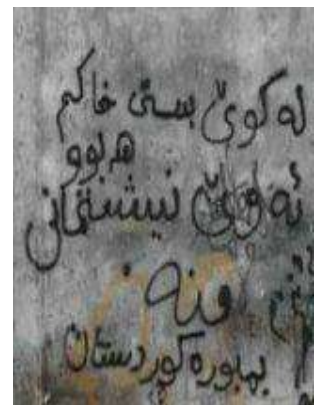 لە کوێ بستێ خاکم
هەبوو
ئەوێ نیشتمانی
منە
ببورە کوردستان